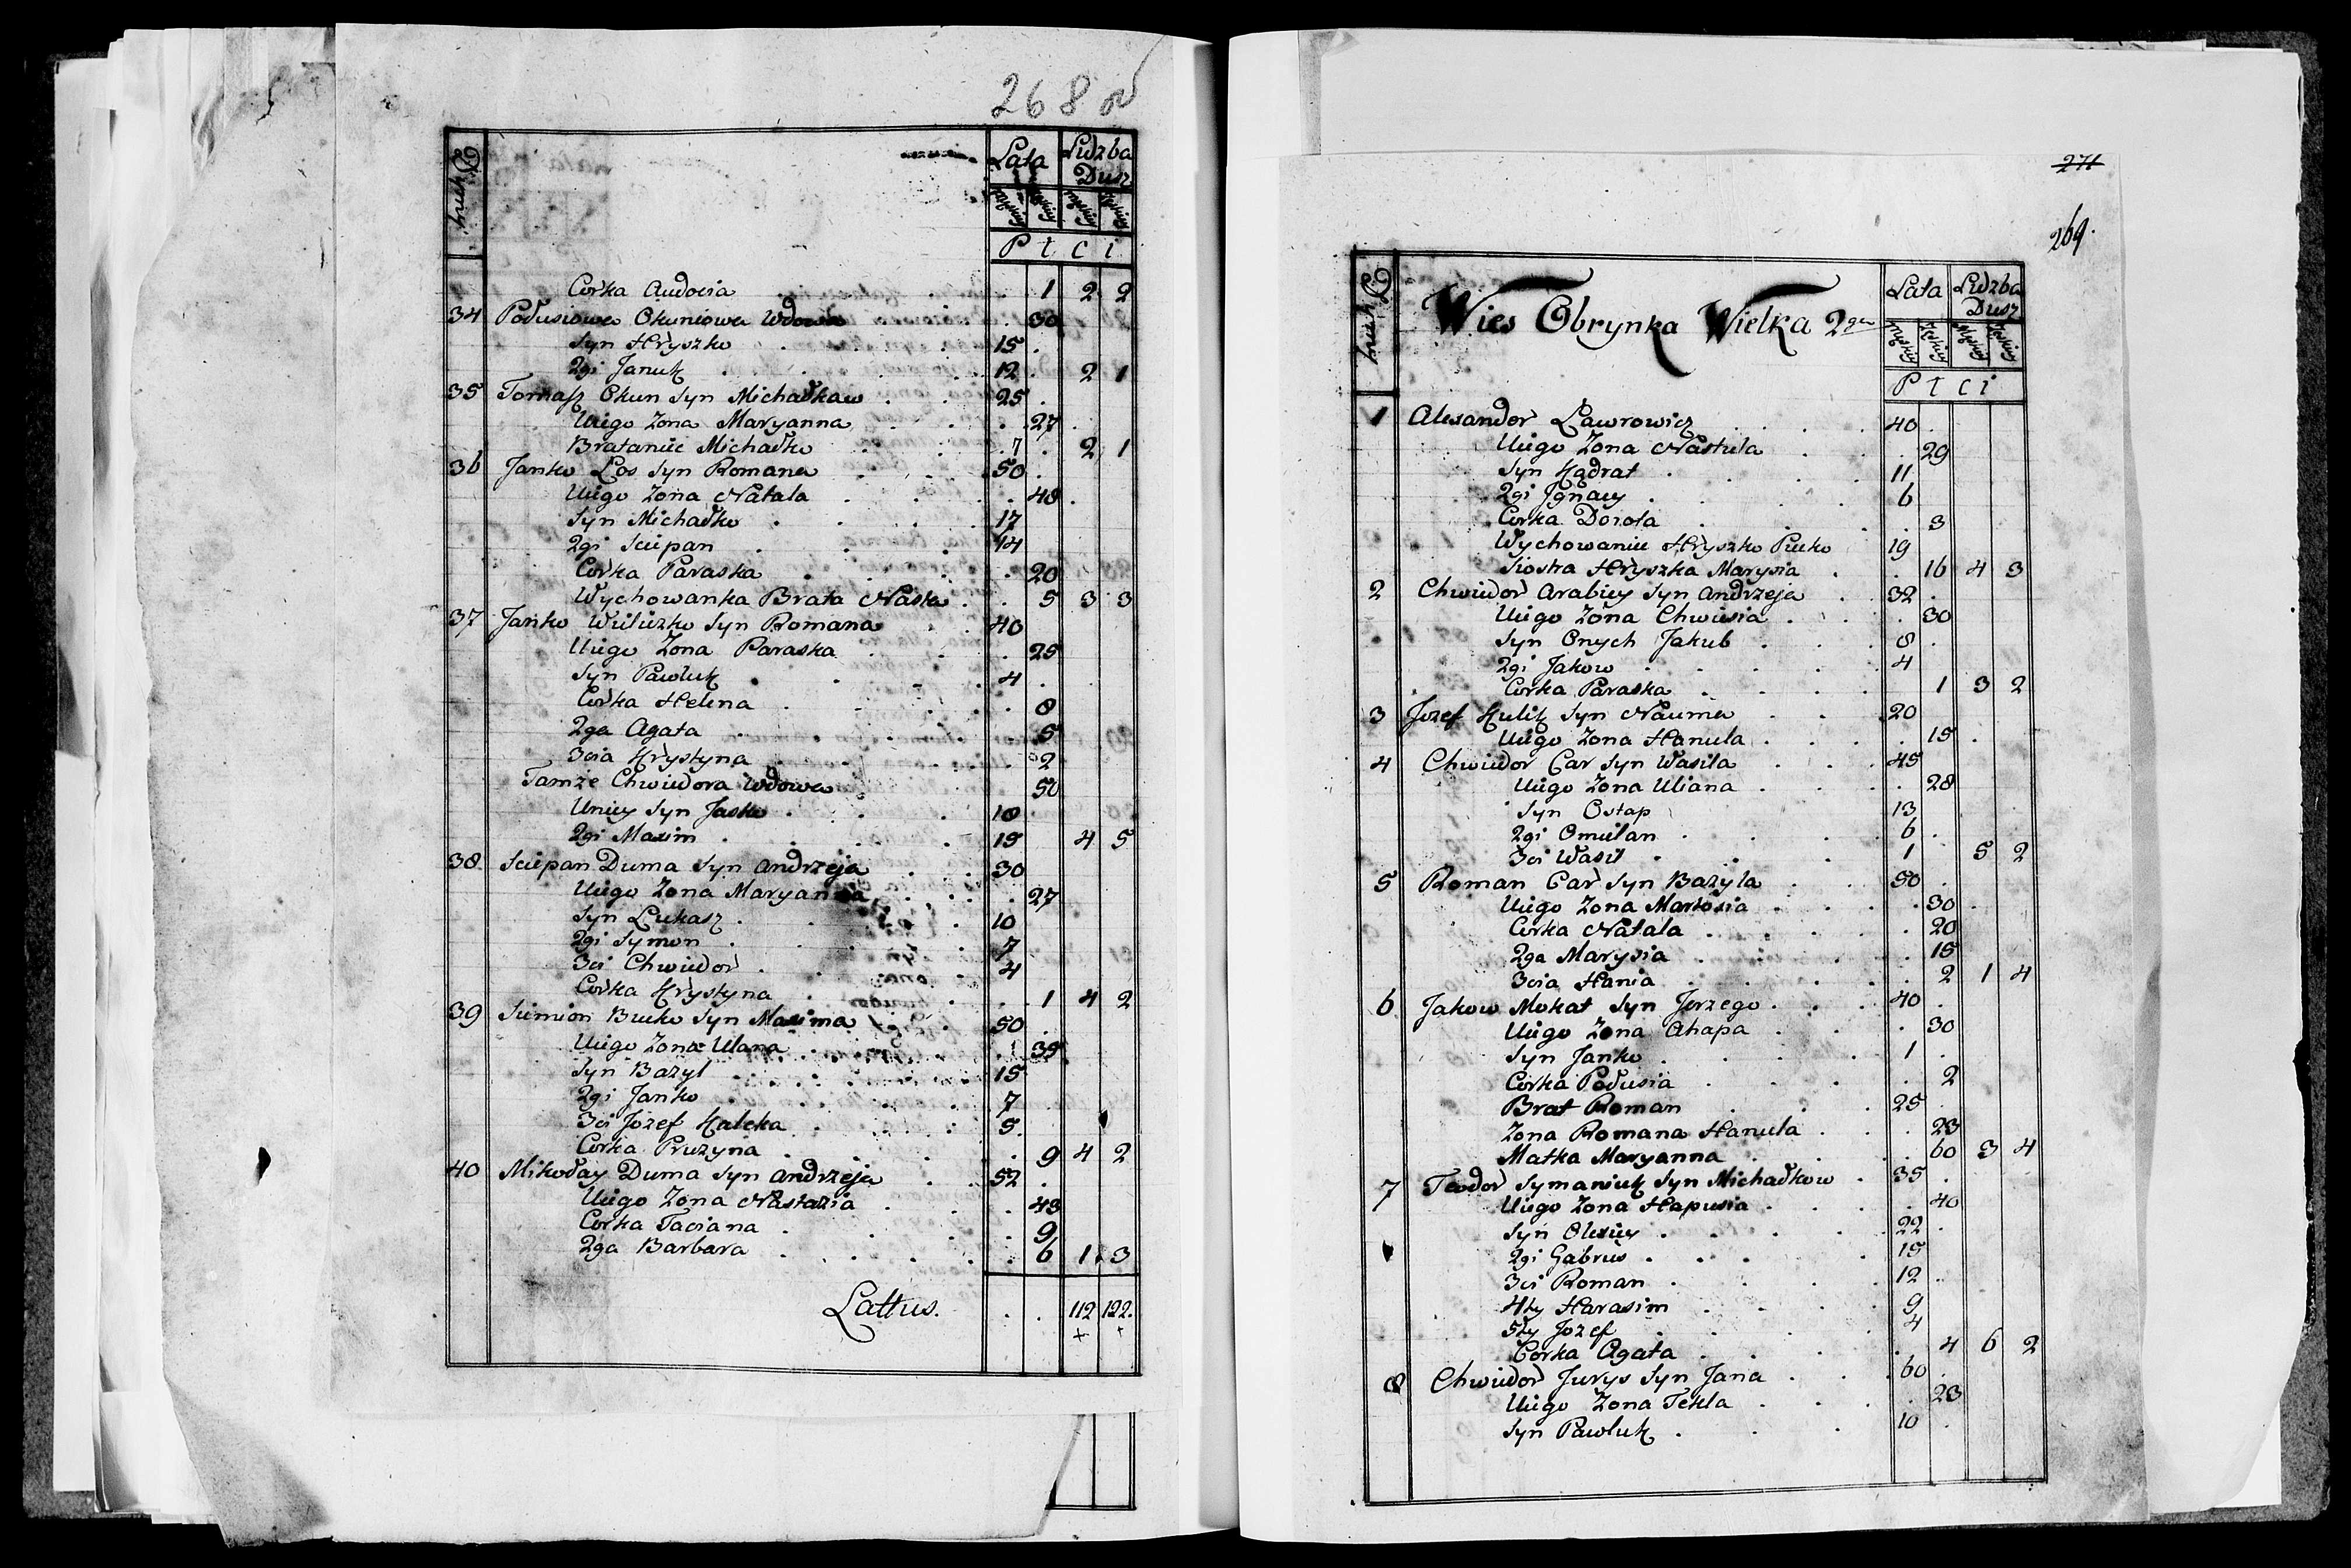 268
Dymy
Lata Liczba Dusz
P ł c i
Corka Audocia 1 2 2
34 Połusiowa Okuniowa Wdowa 30
Syn Hryszko 15
2gi Januk 12 2 1
35 Tomasz Okun Syn Michałkaw 25
Uiego Zona Maryanna 27
Brataniec Michałko 7 2 1
36 Janko Los Syn Romana 50
Uiego Zona Natala 48
Syn Michałko 17
2gi Sciepan 14
Corka Paraska 20
Wychowanka Brata Naska 5 3 3
37 Janko Wiliczko Syn Romana 40
Uiego Zona Paraska 25
Syn Pawluk 4
Corka Helena 8
2ga Agata 5
3cia Krystyna 2
Tamże Chwiedora Wdowa 50
Uniey Syn Jasko 18
2gi Maxim 15 4 5
38 Sciepan Duma Syn Andrzeja 30
Uiego Zona Maryanna 27
Syn Lukasz 10
2gi Symon 7
3ci Chwiedor 4
Corka Krystyna 1 4 2
39 Siemion Bucko Syn Maxima 50
Uiego Zona Ulana 35
Syn Bazyl 15
2gi Janko 7
3ci Jozef Kaleka 5
Corka Pruzyna 9 4 2
40 Mikołay Duma Syn Andrzeja 52
Uiego Zona Nastazia 43
Corka Taciana 9
2ga Barbara 6 1 3
Lattus. 112 122.
271
269.
Dymy
Wies Obrynka Wielka 2ga
Lata Liczba Dusz
P ł c i
1 Alexandor Ławrowicz 40
Uiego Zona Nastula 29
Syn Kądrat 11
2gi Jgnacy 6
Corka Dorota 3
Wychowaniec Hryszko Pucko 19
Siostra Hryszka Marysia 16 4 3
2 Chwiedor Arabiey Syn Andrzeja 32
Uiego Zona Chwiesia 30
Syn Onych Jakub 8
2gi Jakow 4
Corka Paraska 1 3 2
3 Jozef Kulik Syn Nauma 20
Uiego Zona Hanula 15
4 Chwiedor Car Syn Wasila 45
Uiego Zona Uliana 28
Syn Ostap 13
2gi Omielan 6
3ci Wasil 1 5 2
5 Roman Car Syn Bazyla 50
Uiego Zona Martosia 30
Corka Natala 20
2ga Marysia 15
3cia Hania 2 1 4
6 Jakow Mokat Syn Jerzego 40
Uiego Zona Ahapa 30
Syn Janko 1
Corka Połusia 2
Brat Roman 25
Zona Romana Hanula 23
Matka Maryanna 60 3 4
7 Teodor Symaniuk Syn Michałkow 35
Uiego Zona Hapusia 40
Syn Olexiey 22
2gi Gabrus 15
3ci Roman 12
4ty Harasim 9
5ty Jozef 4
Corka Agata 4 6 2
8 Chwiedor Jurys Syn Jana 60
Uiego Zona Tekla 23
Syn Pawluk 10